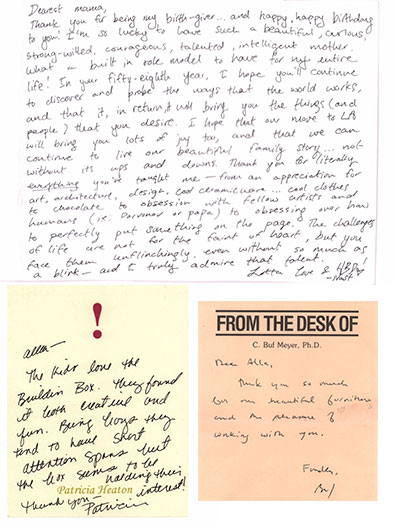 Dearest mama,
Thank you for being my birth-giver... and happy, happy birthday
to you! I'm so lucky to have such a beautiful, curious,
strong-willed, courageous, talented, intelligent mother.
What a built in role model to have for my entire
life! In your fifty-eighth year, I hope you'll continue
to discover and probe the ways that the world works,
and that it, in return, will bring you the things (and
people) that you desire. I hope that our move to LA
will bring you lots of joy too, and that we can
continue to live our beautiful family story... not
without its ups and downs. Thank you for literally
everything you've taught me - from an appreciation for
art, architecture, design, cool ceramicware... cool clothes
to chocolate to obsession with fellow artists and
humans (ie. or papa) to obsessing over how
to perfectly put something on the page. The challenges
of life are not for the faint of heart, but you
face them unflinchingly, even without so much as
a blink - and I truly admire that talent.
Lotta Love & HBDay!
!
allee -
The kids love the
Buildin Box. They found
it both creative and
fun. Being boys they
tend to have short
attention spans but
the box seems to be
holding their
Patricia Heaton
interest!
Thank you -
Patricia
FROM THE DESK OF
C. Buf Meyer, Ph.D.
Dear Alla,
Thank you so much
for our beautiful furniture
and the pleasure of
working with you.
Fondly,
Buf